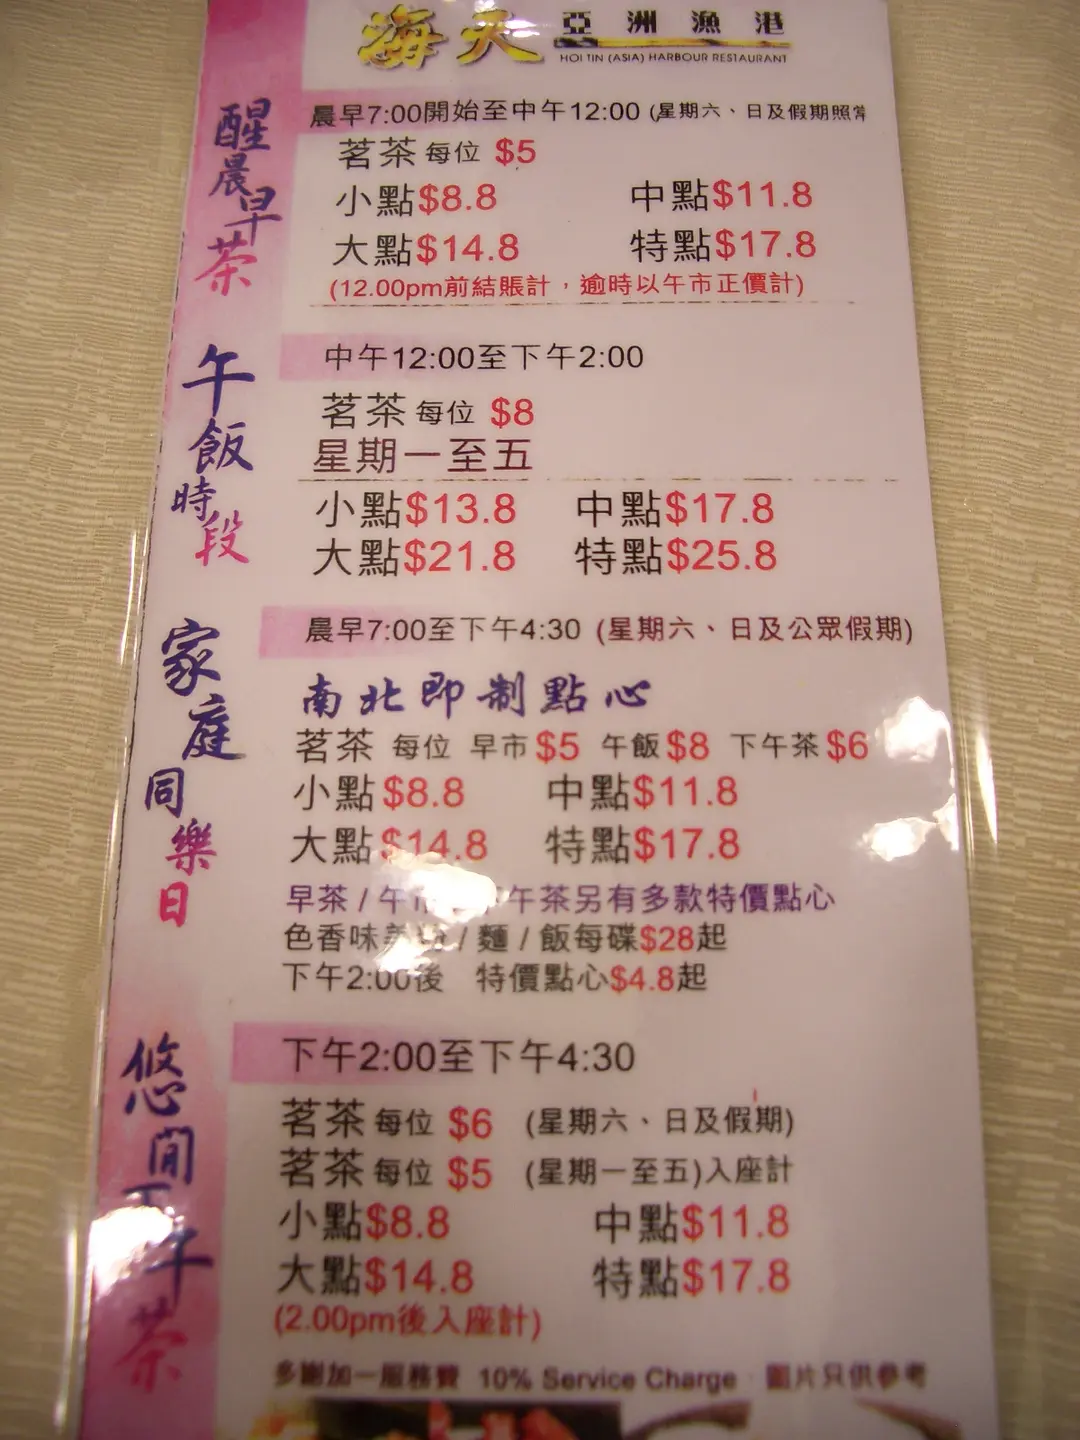 海天 亞洲漁港
HOI TIN (ASIA) HARBOUR RESTAURANT
醒晨早茶
晨早7:00開始至中午12:00 (星期六、日及假期照常
茗茶 每位 $5
小點$8.8 中點$11.8
大點$14.8 特點$17.8
(12.00pm前結賬計，逾時以午市正價計)
午飯時段
中午12:00至下午2:00
茗茶 每位 $8
星期一至五
小點$13.8 中點$17.8
大點$21.8 特點$25.8
家庭同樂日
晨早7:00至下午4:30 (星期六、日及公眾假期)
南北即制點心
茗茶 每位 早市$5 午飯$8 下午茶$6
小點$8.8 中點$11.8
大點$14.8 特點$17.8
早茶 / 午 午茶另有多款特價點心
色香味 / 麵 / 飯每碟$28起
下午2:00後 特價點心$4.8起
悠閒下午茶
下午2:00至下午4:30
茗茶 每位 $6 (星期六、日及假期)
茗茶 每位 $5 (星期一至五)入座計
小點$8.8 中點$11.8
大點$14.8 特點$17.8
(2.00pm後入座計)
多謝加一服務費 10% Service Charge 圖片只供參考